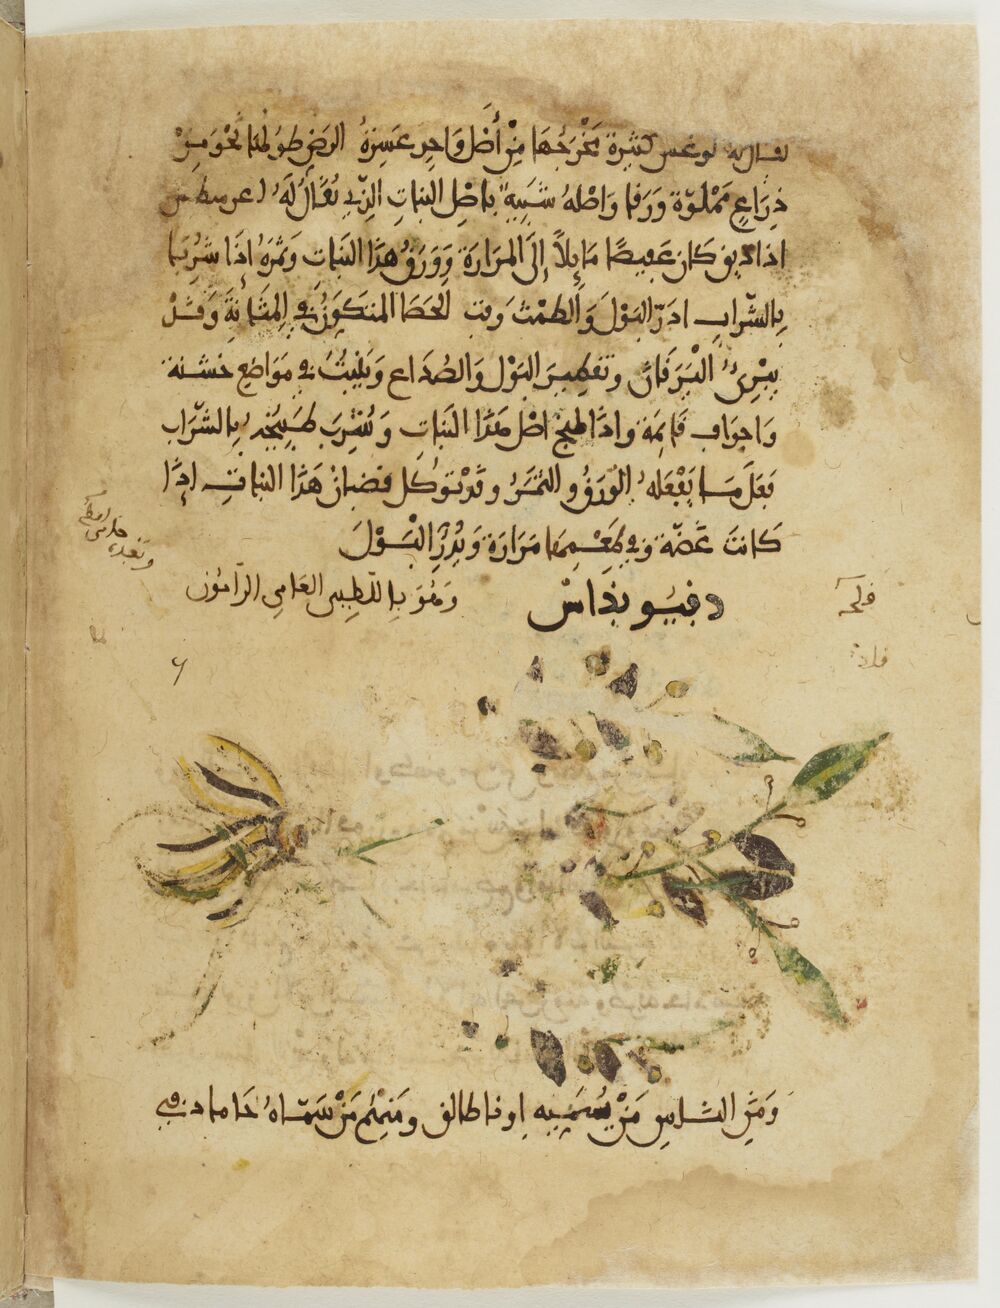 يقال له لوغس كثيرة مخرجها من أصل واحد عسرة الرض طولها نحو من
ذراع مملوة ورقا واصله شبيه باصل النبات الذي يقال له
اذا ذيق كان عفصا مايلا إلى المرارة وورق هذا النبات وثمره إذا شربا
بالشراب ادر البول والطمث وفت الحصا المتكون في المثانة وقد
يبرئ اليرقان وتقطير البول والصداع وينبت في مواضع خشنة
واجراف قايمة واذا طبخ اصل هذا النبات وشرب طبيخه بالشراب
فعل ما يفعله الورق والثمر وقد توكل قضبان هذا النبات اذا
كانت غضة وفي طعمها مرارة ويدر البول
دفنيويداس وهو باللطيني العامي
ومن الناس من يسميه اوفاطالن ومنهم من سماه حامادفني